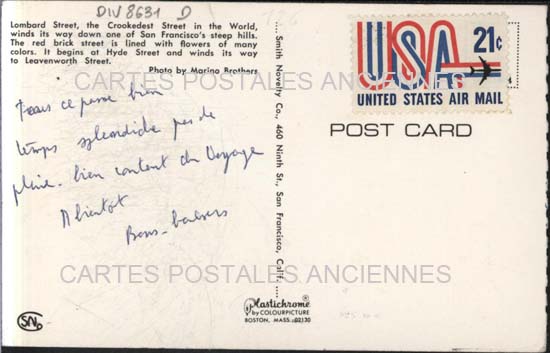 DIV 8631 D
Lombard Street, the Crookedest Street in the World,
winds its way down one of San Francisco's steep hills.
The red brick street is lined with flowers of many
colors. It begins at Hyde Street and winds its way
to Leavenworth Street.
Photo by Marino Brothers
USA 21¢
UNITED STATES AIR MAIL
POST CARD
CARTES POSTALES ANCIENNES
ce passe bien
temps splendide pas de
pluie. bien content du Voyage
A bientot
Bons baisers
.... Smith Novelty Co., 460 Ninth St., San Francisco, Calif. ....
CARTES POSTALES ANCIENNES
Plastichrome®
by COLOURPICTURE
BOSTON, MASS. 02130